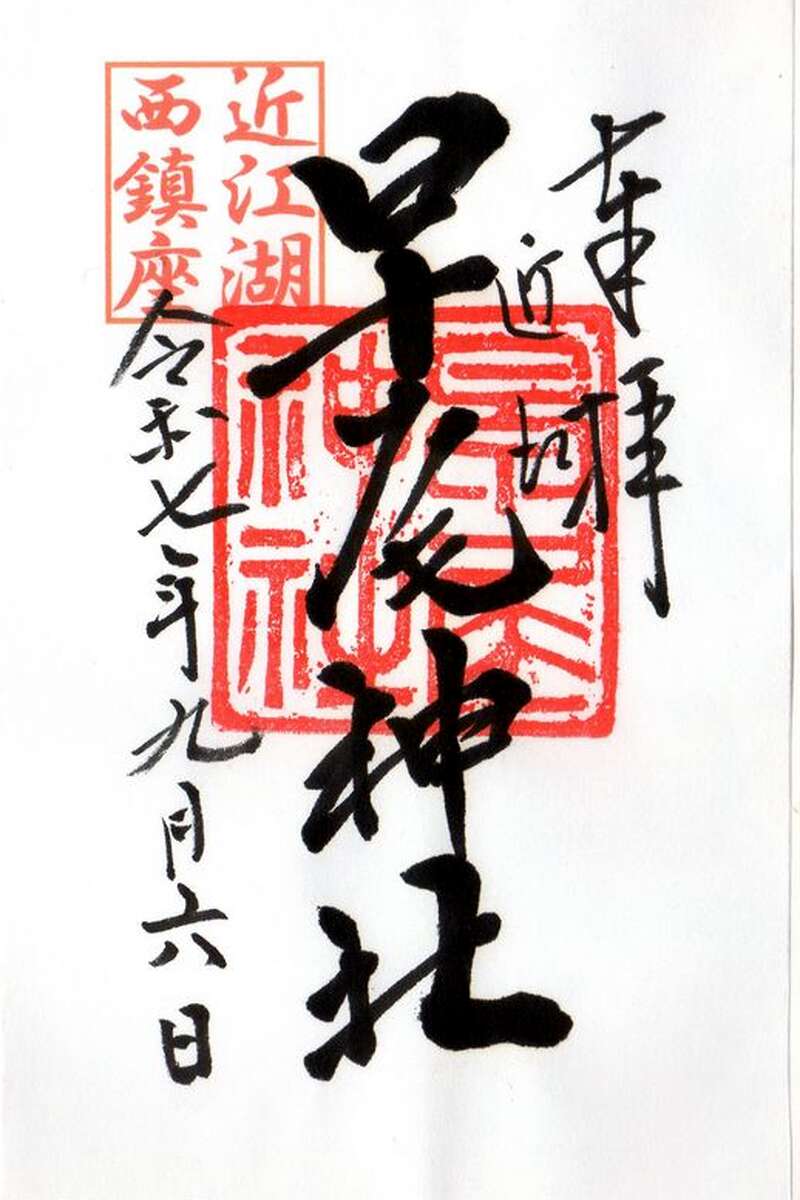 奉拝
近
早尾神社
早尾
神社
近江湖
西鎮座
令和七年九月六日